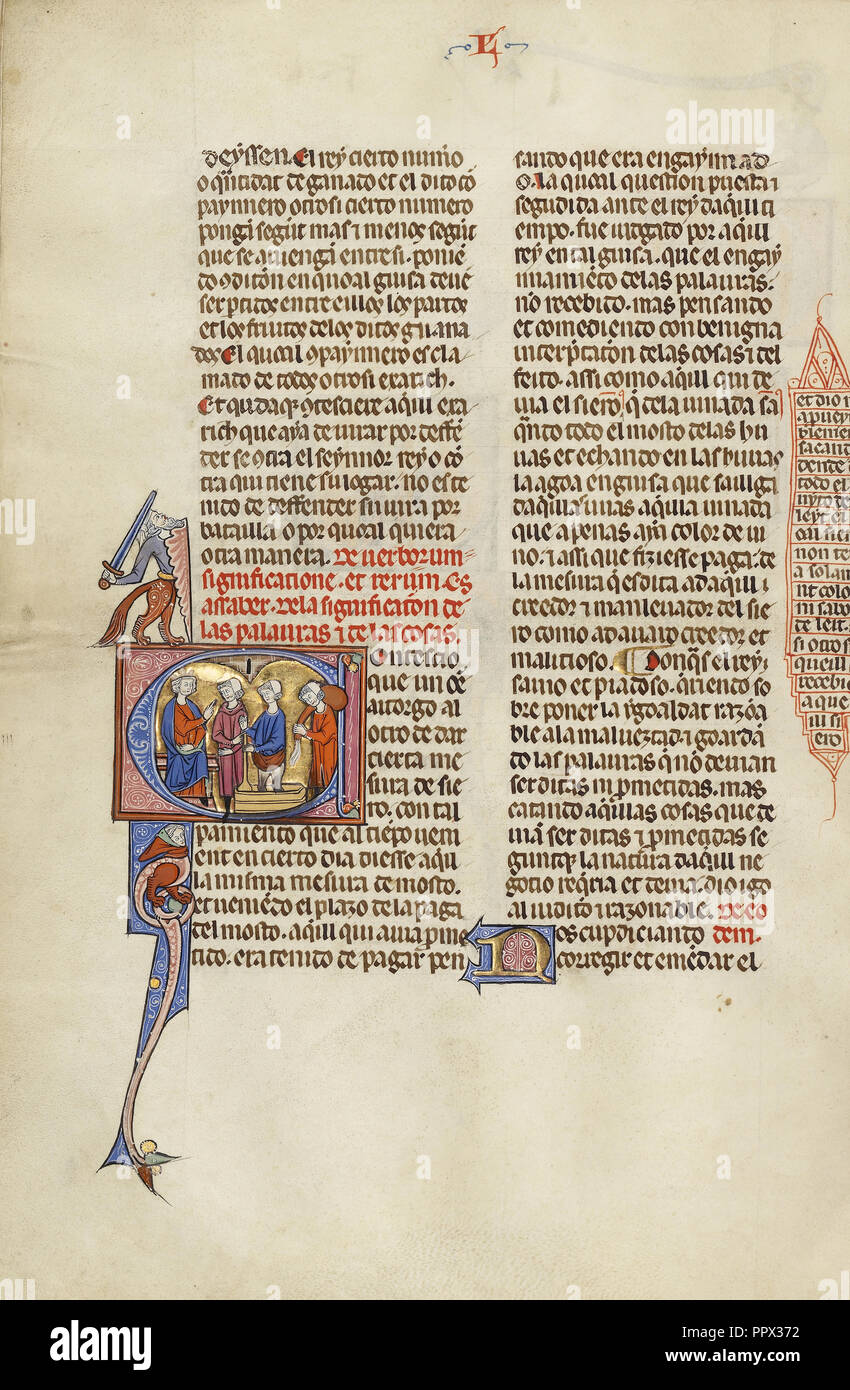 L
deyssen. El rey cierto numero
o q̃ntidat de ganado et el dito cõ
paynnero otrosi cierto numero
pongã segũt mas ⁊ menos segũt
que se auengã entre si. ponie
do ꝯditõn en quoal guisa deuẽ
ser ꝑtidos entre eillos los partos
et los fruitos delos ditos guana
dos El quoal ꝯpaynnero es cla
mado de todos otrosi exarich.
Et quãdaq̃ ꝯtesciere aqui exa
rich que aya de iurar por deffẽ
der se ꝯtra el seynnor rey o cõ
tra qui tiene su logar. no es te
nido de deffender su iura por
batailla o por quoal quiera
otra manera. De verborum
significatione. et rerum. Es
assaber. dela significatõn de
las palauras ⁊ delas cosas.
Contescio
que un õe
atorgo al
otro de dar
cierta me
sura de sie
ro. con tal
pamiento que al tiẽpo uem
ent en cierto dia diesse aqui
la misma mesura de mosto.
et ueniẽdo el plazo dela paga
del mosto. aqui qui auia ꝓme
tido. era tenido de pagar pen
sando que era engaynnad
o. la quoal question puesta ⁊
segudida ante el rey daq̃l ti
empo. fue iutgado por aquil
rey en tal guisa. que el engay
nnamiẽto delas palauras.
nõ recebido. mas pensando
et comediento con benigna
interp̃tatõn delas cosas ⁊ del
feito. assi como aquil qui de
uia el siero
qñto todo el mosto delas hu
uas et echando en las huuas
la agoa en guisa que sailga
daq̃llas uuas aquila uinada
que apenas aya color de ui
no. ⁊ assi que fiziesse paga. de
la mesura q̃ es dita ad aquil
creedor et manleuador del sie
ro como ad auaro creedor et
malicioso. Donq̃s el rey.
sauio et piadoso. q̃riendo so
bre poner la ygoaldat razõa
ble ala malueztad ⁊ goardã
do las palauras q̃ nõ deuian
ser ditas ni ꝓmetidas. mas
catando aq̃illas cosas que de
uiã ser ditas ⁊ ꝓmetidas se
gunt q̃ la natura daquil ne
gocio req̃ria et deuia. dio igo
al iudicio ⁊ razonable. De eo
Nos cupdiciando dem.
corregir et emẽdar el
et dio
todo el
non te
a solam
de leit.
si otro
recebid
a que
ero
alamy
alamy
Image ID: PPX372
www.alamy.com